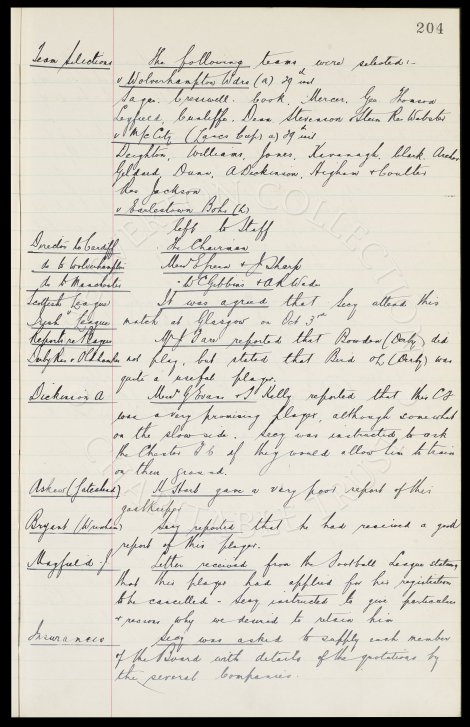 204
Team Selections The following teams were selected:-
v Wolverhampton Wdrs (a) 29th inst
Sagar, Cresswell, Cook, Mercer, Geo Thomson
Leyfield, Cunliffe, Dunn, Stevenson & Stein Res Webster
v M/c City (Lancs Cup) a) 29th inst
Deighton, Williams, Jones, Kavanagh, Clark, Archer
Geldard, Dunn, A Dickinson, Higham & Coulter
Res Jackson
v Earlestown Bohs (h)
left to Staff
Director to Cardiff The Chairman
do to Wolverhampton Messrs & J Sharp
do to Manchester " W C Gibbins & A K Wade
Scottish League It was agreed that Secy attend this
v Irish League match at Glasgow on Oct 3rd
Reports re Players Mr J Parr reported that Bowden (Derby) did
Derby Res v Oldham Res not play, but stated that Bird OL (Derby) was
quite a useful player.
Dickinson A Messrs Evans & T. Kelly reported that this CF
was a very promising player, although somewhat
on the slow side. Secy was instructed to ask
the Chester FC if they would allow him to train
on their ground.
Askew (Gateshead) H Hart gave a very poor report of this
goalkeeper
Bryant (Wrexham) Secy reported that he had received a good
report of this player.
Mayfield : J Letter received from the Football League stating
that this player had applied for his registration
to be cancelled - Secy instructed to give particulars
& reasons why we desired to retain him
Insurances Secy was asked to supply each member
of the Board with details of the quotations by
the several Companies.